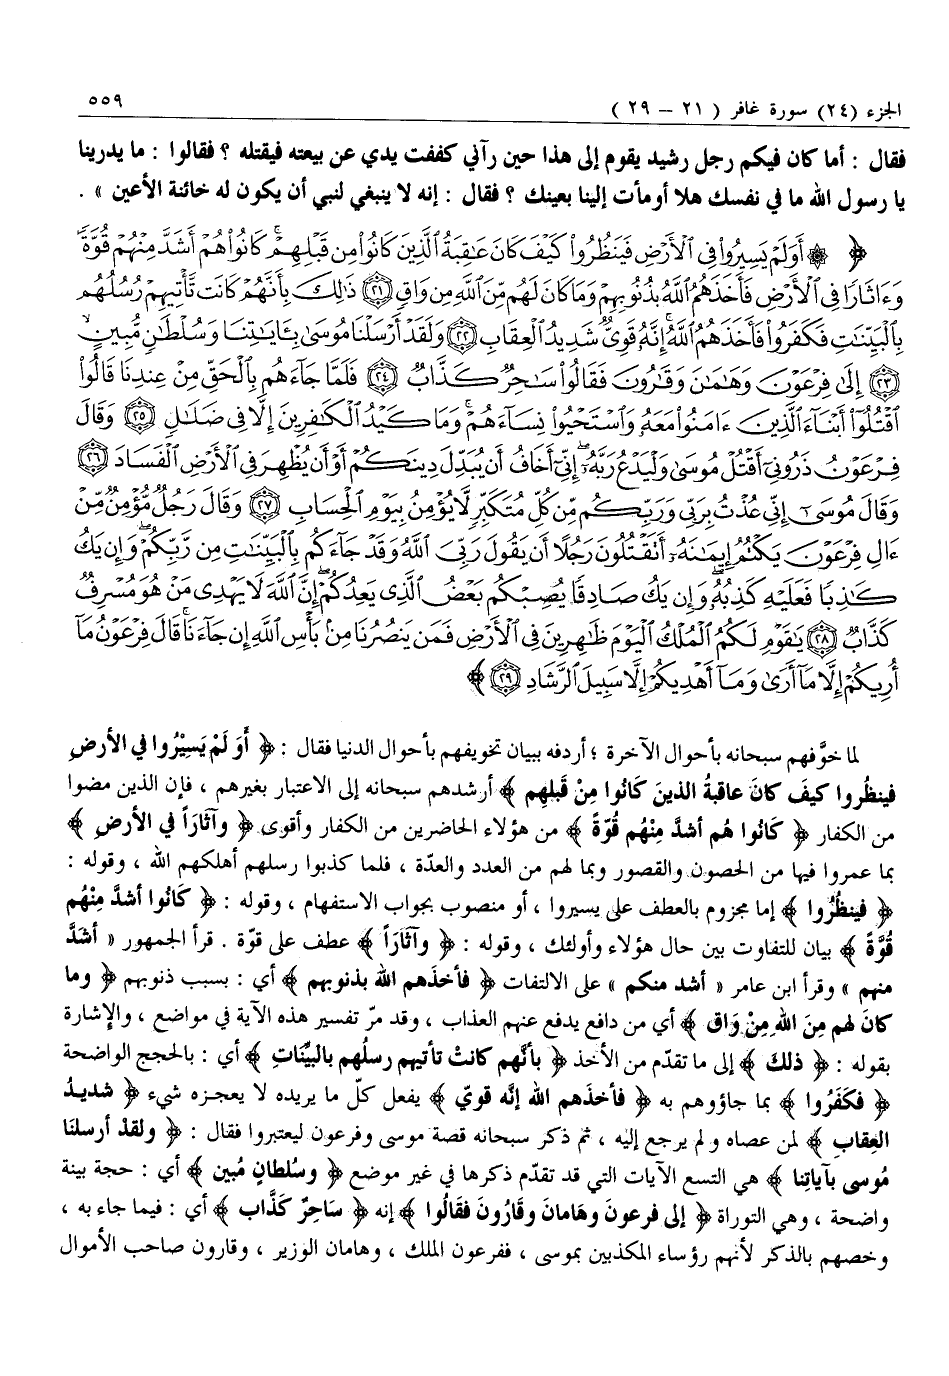 الجزء (٢٤) سورة غافر (٢١ – ٢٩) ٥٥٩
فقال : أما كان فيكم رجل رشيد يقوم إلى هذا حين رآني كففت يدي عن بيعته فيقتله ؟ فقالوا : ما يدرينا
يا رسول الله ما في نفسك هلا أومأت إلينا بعينك ؟ فقال : إنه لا ينبغي لنبي أن يكون له خائنة الأعين » .
﴿ ۞ أَوَلَمْ يَسِيرُوا۟ فِى ٱلْأَرْضِ فَيَنظُرُوا۟ كَيْفَ كَانَ عَـٰقِبَةُ ٱلَّذِينَ كَانُوا۟ مِن قَبْلِهِمْ ۚ كَانُوا۟ هُمْ أَشَدَّ مِنْهُمْ قُوَّةً
وَءَاثَارًا فِى ٱلْأَرْضِ فَأَخَذَهُمُ ٱللَّهُ بِذُنُوبِهِمْ وَمَا كَانَ لَهُم مِّنَ ٱللَّهِ مِن وَاقٍ ٢١ ذَٰلِكَ بِأَنَّهُمْ كَانَت تَّأْتِيهِمْ رُسُلُهُم
بِٱلْبَيِّنَـٰتِ فَكَفَرُوا۟ فَأَخَذَهُمُ ٱللَّهُ ۚ إِنَّهُۥ قَوِىٌّ شَدِيدُ ٱلْعِقَابِ ٢٢ وَلَقَدْ أَرْسَلْنَا مُوسَىٰ بِـَٔايَـٰتِنَا وَسُلْطَـٰنٍ مُّبِينٍ
٢٣ إِلَىٰ فِرْعَوْنَ وَهَـٰمَـٰنَ وَقَـٰرُونَ فَقَالُوا۟ سَـٰحِرٌ كَذَّابٌ ٢٤ فَلَمَّا جَآءَهُم بِٱلْحَقِّ مِنْ عِندِنَا قَالُوا۟
ٱقْتُلُوٓا۟ أَبْنَآءَ ٱلَّذِينَ ءَامَنُوا۟ مَعَهُۥ وَٱسْتَحْيُوا۟ نِسَآءَهُمْ ۚ وَمَا كَيْدُ ٱلْكَـٰفِرِينَ إِلَّا فِى ضَلَـٰلٍ ٢٥ وَقَالَ
فِرْعَوْنُ ذَرُونِىٓ أَقْتُلْ مُوسَىٰ وَلْيَدْعُ رَبَّهُۥٓ ۖ إِنِّىٓ أَخَافُ أَن يُبَدِّلَ دِينَكُمْ أَوْ أَن يُظْهِرَ فِى ٱلْأَرْضِ ٱلْفَسَادَ ٢٦
وَقَالَ مُوسَىٰٓ إِنِّى عُذْتُ بِرَبِّى وَرَبِّكُم مِّن كُلِّ مُتَكَبِّرٍ لَّا يُؤْمِنُ بِيَوْمِ ٱلْحِسَابِ ٢٧ وَقَالَ رَجُلٌ مُّؤْمِنٌ مِّنْ
ءَالِ فِرْعَوْنَ يَكْتُمُ إِيمَـٰنَهُۥٓ أَتَقْتُلُونَ رَجُلًا أَن يَقُولَ رَبِّىَ ٱللَّهُ وَقَدْ جَآءَكُم بِٱلْبَيِّنَـٰتِ مِن رَّبِّكُمْ ۖ وَإِن يَكُ
كَـٰذِبًا فَعَلَيْهِ كَذِبُهُۥ ۖ وَإِن يَكُ صَادِقًا يُصِبْكُم بَعْضُ ٱلَّذِى يَعِدُكُمْ ۖ إِنَّ ٱللَّهَ لَا يَهْدِى مَنْ هُوَ مُسْرِفٌ
كَذَّابٌ ٢٨ يَـٰقَوْمِ لَكُمُ ٱلْمُلْكُ ٱلْيَوْمَ ظَـٰهِرِينَ فِى ٱلْأَرْضِ فَمَن يَنصُرُنَا مِنۢ بَأْسِ ٱللَّهِ إِن جَآءَنَا ۚ قَالَ فِرْعَوْنُ مَآ
أُرِيكُمْ إِلَّا مَآ أَرَىٰ وَمَآ أَهْدِيكُمْ إِلَّا سَبِيلَ ٱلرَّشَادِ ٢٩ ﴾
لما خوَّفهم سبحانه بأحوال الآخرة ؛ أردفه ببيان تخويفهم بأحوال الدنيا فقال : ﴿ أَوَ لَمْ يَسِيْرُوا في الأرضِ
فينظُروا كيفَ كانَ عاقبةُ الذينَ كَانُوا مِنْ قَبلِهِم ﴾ أرشدهم سبحانه إلى الاعتبار بغيرهم ، فإن الذين مضوا
من الكفار ﴿ كَانُوا هُم أشدَّ مِنْهُم قُوّةً ﴾ من هؤلاء الحاضرين من الكفار وأقوى ﴿ وآثَارَاً في الأرضِ ﴾
بما عمروا فيها من الحصون والقصور وبما لهم من العدد والعدّة ، فلما كذبوا رسلهم أهلكهم الله ، وقوله :
﴿ فينظُرُوا ﴾ إما مجزوم بالعطف على يسيروا ، أو منصوب بجواب الاستفهام ، وقوله : ﴿ كَانُوا أشدَّ مِنهُم
قُوَّةً ﴾ بيان للتفاوت بين حال هؤلاء وأولئك ، وقوله : ﴿ وآثَارَاً ﴾ عطف على قوّة . قرأ الجمهور « أشَدَّ
منهم » وقرأ ابن عامر « أشد منكم » على الالتفات ﴿ فأخذَهم الله بذنوبهم ﴾ أي : بسبب ذنوبهم ﴿ وما
كانَ لهم مِنَ اللهِ مِنْ وَاق ﴾ أي من دافع يدفع عنهم العذاب ، وقد مرّ تفسير هذه الآية في مواضع ، والإشارة
بقوله : ﴿ ذلكَ ﴾ إلى ما تقدّم من الأخذ ﴿ بأنَّهم كانتْ تأتيهم رسلُهم بالبيِّناتِ ﴾ أي : بالحجج الواضحة
﴿ فكَفَرُوا ﴾ بما جاؤوهم به ﴿ فأخذَهم الله إنَّه قويّ ﴾ يفعل كلّ ما يريده لا يعجزه شيء ﴿ شديدُ
العِقابِ ﴾ لمن عصاه ولم يرجع إليه ، ثم ذكر سبحانه قصة موسى وفرعون ليعتبروا فقال : ﴿ ولقدْ أرسلنَا
مُوسى بآياتِنا ﴾ هي التسع الآيات التي قد تقدّم ذكرها في غير موضع ﴿ وسُلطانٍ مُبين ﴾ أي : حجة بينة
واضحة ، وهي التوراة ﴿ إلى فرعونَ وهَامانَ وقَارُونَ فقَالُوا ﴾ إنه ﴿ سَاحِرٌ كَذَّاب ﴾ أي : فيما جاء به ،
وخصهم بالذكر لأنهم رؤساء المكذبين بموسى ، ففرعون الملك ، وهامان الوزير ، وقارون صاحب الأموال